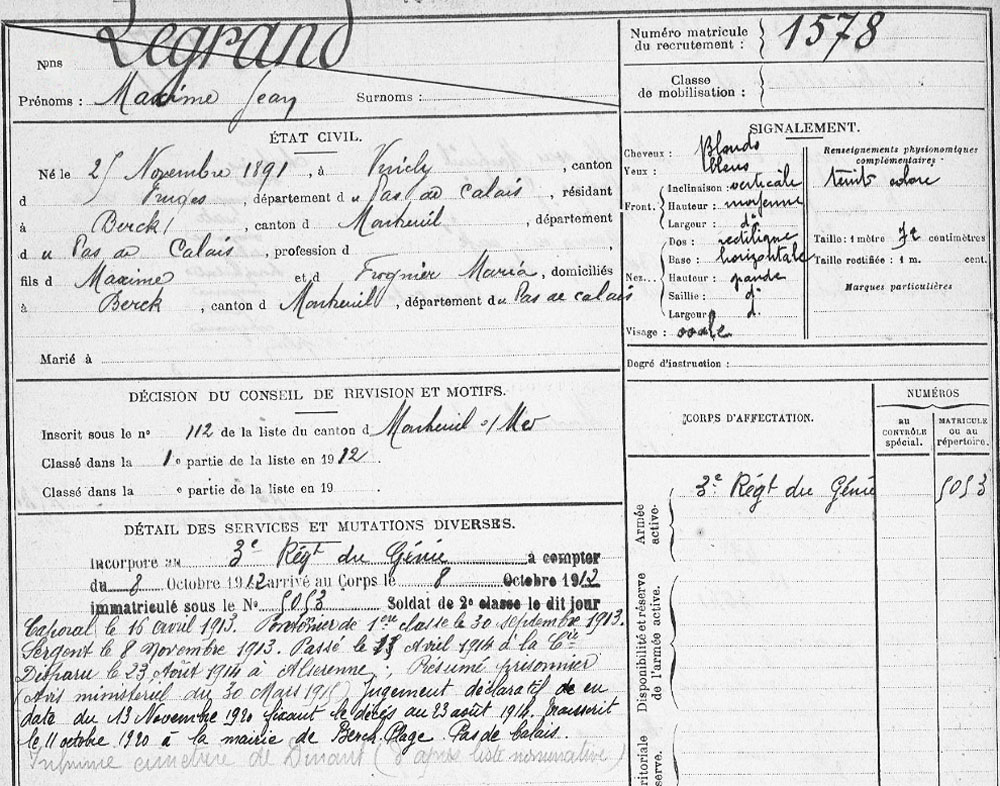 Legrand
Noms
Prénoms : Maxime Jean Surnoms :
ÉTAT CIVIL.
Né le 25 Novembre 1891, à Vincly, canton
d Fruges, département du Pas de Calais, résidant
à Berck, canton d Montreuil, département
du Pas de Calais, profession d
fils d Maxime et d Frognier Maria, domiciliés
à Berck, canton d Montreuil, département du Pas de calais
Marié à
DÉCISION DU CONSEIL DE REVISION ET MOTIFS.
Inscrit sous le n° 112 de la liste du canton d Montreuil s/ Mer
Classé dans la 1e partie de la liste en 1912.
Classé dans la e partie de la liste en 19
DÉTAIL DES SERVICES ET MUTATIONS DIVERSES.
Incorporé au 3e Régt du Génie à compter
du 8 Octobre 1912 arrivé au Corps le 8 Octobre 1912
immatriculé sous le N° 5053 Soldat de 2e classe le dit jour
Caporal le 16 avril 1913. Pontonier de 1ère classe le 30 septembre 1913.
Sergent le 8 novembre 1913. Passé le Avril 1914 à la Cie
Disparu le 23 Août 1914 à ; Présumé prisonnier
(Avis ministériel du 30 Mars 1915) Jugement déclaratif de en
date du 13 Novembre 1920 fixant le décès au 23 août 1914. transcrit
le 11 octobre 1920 à la mairie de Berck Plage. Pas de Calais.
Inhumé cimetière de Dinant (d'après liste nominative)
Numéro matricule
du recrutement : 1578
Classe
de mobilisation :
SIGNALEMENT.
Cheveux : Blonds
Yeux : bleus
Front. Inclinaison : verticale
Hauteur : moyenne
Largeur : do
Nez. Dos : rectiligne
Base : horizontale
Hauteur : grande
Saillie : do
Largeur : do
Visage : ovale
Renseignements physionomiques
complémentaires.
teint coloré
Taille : 1 mètre 72 centimètres
Taille rectifiée : 1 m. cent.
Marques particulières
Degré d'instruction :
CORPS D'AFFECTATION.
NUMÉROS
au
CONTRÔLE
spécial.
MATRICULE
ou au
répertoire.
Armée
active.
3e Régt du Génie 5053
Disponibilité et réserve
de l'armée active.
ritoriale
serve.